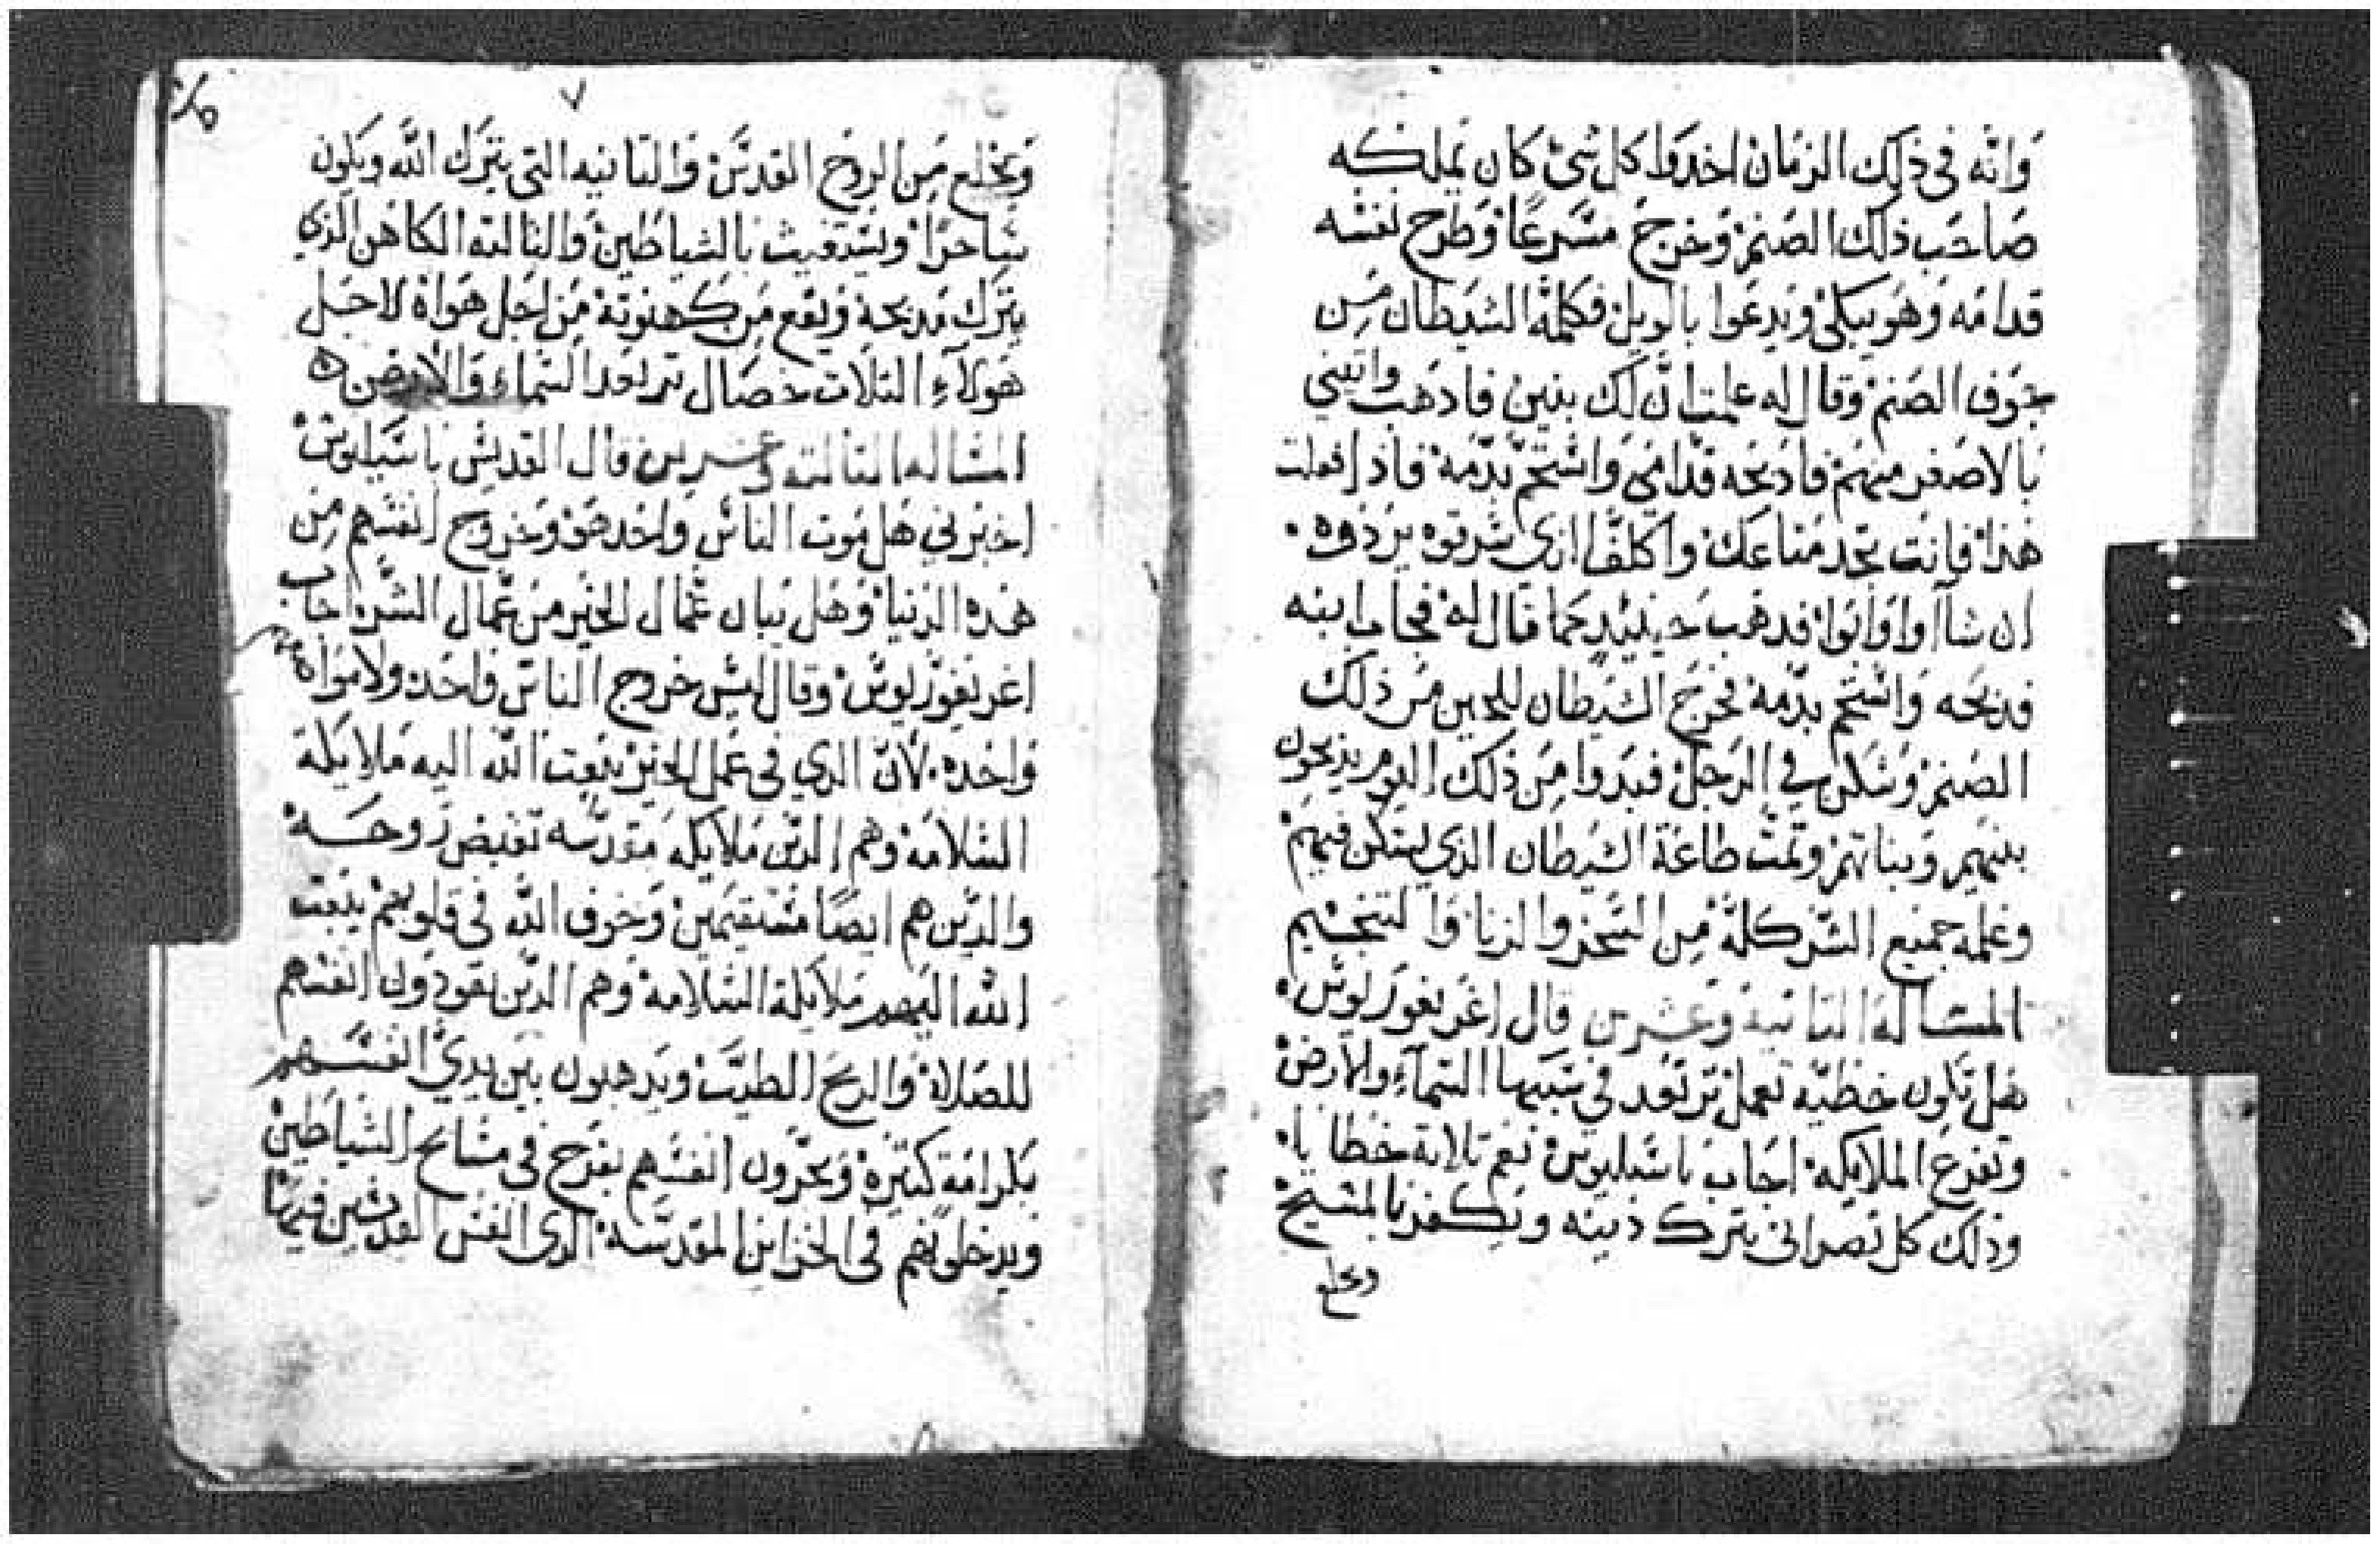 وانه في ذلك الزمان اخدوا كل شي كان يملكه
صاحب ذلك الصنم وخرج مسرعا وطرح نفسه
قدامه وهو يبكي ويدعوا بالويل فكلمه الشيطان من
جوف الصنم وقال له علمت ان لك بنين فادهب واتيني
بالاصغر منهم فادبحه قدامي واستحم بدمه فاذا فعلت
هذا فانت تجد متاعك واكلفا الذي سرقه يردوه
ان شاا وا او ابوا فدهب حينيد كما قال له فجاب ابنه
فدبحه واستحم بدمه فخرج الشيطان للحين من ذلك
الصنم وسكن في الرجل فبدوا من ذلك اليوم يذبحون
بنيهم وبناتهم وتمت طاعة الشيطان الذي يسكن فيهم
وعلمه جميع الشر كله من السحر والزنا والتنجيم
المساله التانيه وعشرين قال اغريغوريوس
هل تكون خطيه تعمل ترتعد في سببها السماء والارض
وتفزع الملايكه اجاب باسيليوس نعم تلاتة خطايا
وذلك كل نصراني يترك دينه ويكفر بالمسيح
ويخلع
٧
ويخلع من الروح القدس والتانيه التي يترك الله ويكون
ساحرا ويستغيث بالشياطين والتالته الكاهن الذي
يترك مدبحه ويقع من كهنوته من اجل هواه لاجل
هولاء التلات خصال ترتعد السماء والارض
المساله التالته وعشرين قال القديس باسيليوس
اخبرني هل موت الناس واحد هو وخروج انفسهم من
هذه الدنيا وهل يبان عمال الخير من عمال الشر اجاب
اغريغوريوس وقال ليس خروج الناس واحد ولا مواتهم
واحده لان الدي في عمل الخير يبعت الله اليه ملايكة
السلامه وهم الدين ملايكه مقدسه تقبض روحه
والدين هم ايضا مستقيمين وخوف الله في قلوبهم يبعت
الله اليهم ملايكة السلامه وهم الدين يقودون انفسهم
للصلاة والريح الطيب ويدهبون بين يدي انفسهم
بكرامة كتيره ويجرون انفسهم بفرح في مسايح الشياطين
ويدخلونهم في الخزاين المقدسه الدي انفس القديسين فيها